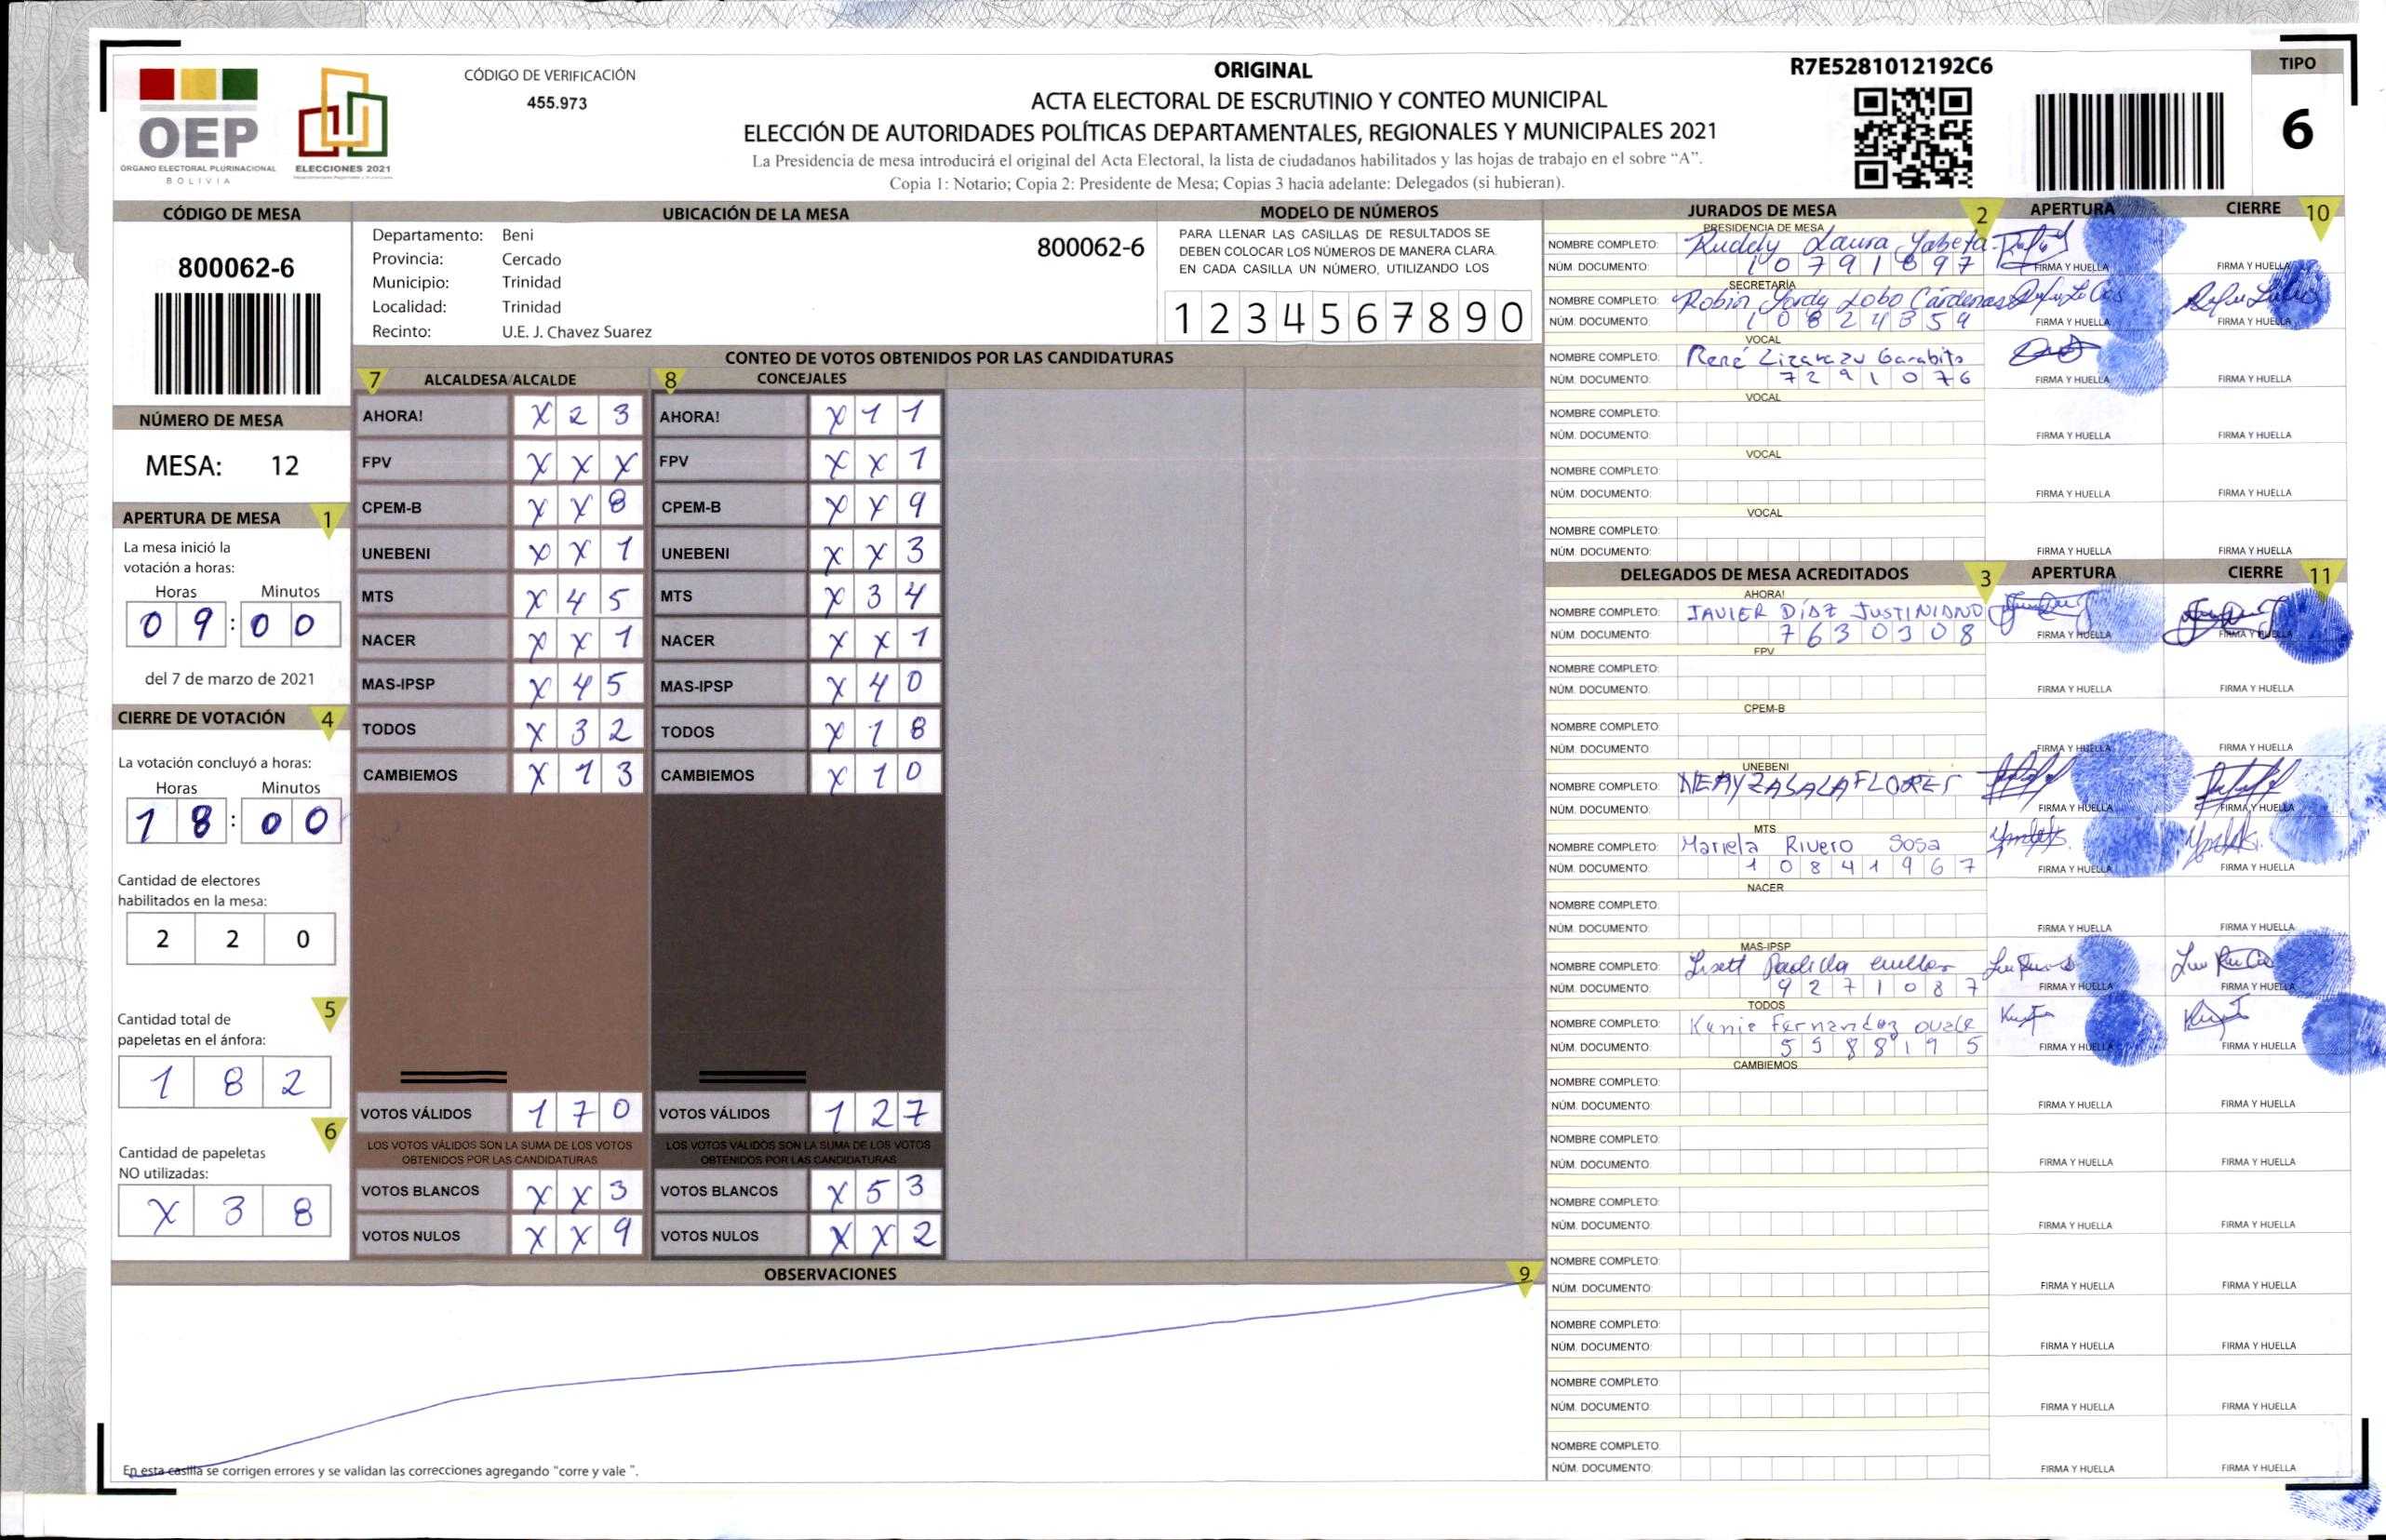 OEP
ÓRGANO ELECTORAL PLURINACIONAL
BOLIVIA
ELECCIONES 2021
CÓDIGO DE VERIFICACIÓN
455.973
ORIGINAL
ACTA ELECTORAL DE ESCRUTINIO Y CONTEO MUNICIPAL
ELECCIÓN DE AUTORIDADES POLÍTICAS DEPARTAMENTALES, REGIONALES Y MUNICIPALES 2021
La Presidencia de mesa introducirá el original del Acta Electoral, la lista de ciudadanos habilitados y las hojas de trabajo en el sobre "A".
Copia 1: Notario; Copia 2: Presidente de Mesa; Copias 3 hacia adelante: Delegados (si hubieran).
R7E5281012192C6
TIPO
6
CÓDIGO DE MESA
800062-6
NÚMERO DE MESA
MESA: 12
APERTURA DE MESA 1
La mesa inició la
votación a horas:
Horas Minutos
0 9 : 0 0
del 7 de marzo de 2021
CIERRE DE VOTACIÓN 4
La votación concluyó a horas:
Horas Minutos
1 8 : 0 0
Cantidad de electores
habilitados en la mesa:
2 2 0
5
Cantidad total de
papeletas en el ánfora:
1 8 2
6
Cantidad de papeletas
NO utilizadas:
X 3 8
UBICACIÓN DE LA MESA
Departamento: Beni
Provincia: Cercado
Municipio: Trinidad
Localidad: Trinidad
Recinto: U.E. J. Chavez Suarez
800062-6
MODELO DE NÚMEROS
PARA LLENAR LAS CASILLAS DE RESULTADOS SE
DEBEN COLOCAR LOS NÚMEROS DE MANERA CLARA.
EN CADA CASILLA UN NÚMERO, UTILIZANDO LOS
1 2 3 4 5 6 7 8 9 0
CONTEO DE VOTOS OBTENIDOS POR LAS CANDIDATURAS
7 ALCALDESA/ALCALDE 8 CONCEJALES
AHORA! X 2 3 AHORA! X 1 1
FPV X X X FPV X X 1
CPEM-B X X 8 CPEM-B X X 9
UNEBENI X X 1 UNEBENI X X 3
MTS X 4 5 MTS X 3 4
NACER X X 1 NACER X X 1
MAS-IPSP X 4 5 MAS-IPSP X 4 0
TODOS X 3 2 TODOS X 1 8
CAMBIEMOS X 1 3 CAMBIEMOS X 1 0
VOTOS VÁLIDOS 1 7 0 VOTOS VÁLIDOS 1 2 7
LOS VOTOS VÁLIDOS SON LA SUMA DE LOS VOTOS LOS VOTOS VÁLIDOS SON LA SUMA DE LOS VOTOS
OBTENIDOS POR LAS CANDIDATURAS OBTENIDOS POR LAS CANDIDATURAS
VOTOS BLANCOS X X 3 VOTOS BLANCOS X 5 3
VOTOS NULOS X X 9 VOTOS NULOS X X 2
OBSERVACIONES 9
En esta casilla se corrigen errores y se validan las correcciones agregando "corre y vale ".
JURADOS DE MESA 2 APERTURA CIERRE 10
PRESIDENCIA DE MESA
NOMBRE COMPLETO: Ruddy Laura
NÚM. DOCUMENTO: 1 0 7 9 1 8 9 7 FIRMA Y HUELLA FIRMA Y HUELLA
SECRETARÍA
NOMBRE COMPLETO: Robin Jordy Lobo Cárdenas
NÚM. DOCUMENTO: FIRMA Y HUELLA FIRMA Y HUELLA
VOCAL
NOMBRE COMPLETO: René Lizarazu Garabito
NÚM. DOCUMENTO: 7 2 9 1 0 7 6 FIRMA Y HUELLA FIRMA Y HUELLA
VOCAL
NOMBRE COMPLETO:
NÚM. DOCUMENTO: FIRMA Y HUELLA FIRMA Y HUELLA
VOCAL
NOMBRE COMPLETO:
NÚM. DOCUMENTO: FIRMA Y HUELLA FIRMA Y HUELLA
VOCAL
NOMBRE COMPLETO:
NÚM. DOCUMENTO: FIRMA Y HUELLA FIRMA Y HUELLA
DELEGADOS DE MESA ACREDITADOS 3 APERTURA CIERRE 11
AHORA!
NOMBRE COMPLETO: JAVIER DÍAZ JUSTINIANO
NÚM. DOCUMENTO: 7 6 3 0 3 0 8 FIRMA Y HUELLA FIRMA Y HUELLA
FPV
NOMBRE COMPLETO:
NÚM. DOCUMENTO: FIRMA Y HUELLA FIRMA Y HUELLA
CPEM-B
NOMBRE COMPLETO:
NÚM. DOCUMENTO: FIRMA Y HUELLA FIRMA Y HUELLA
UNEBENI
NOMBRE COMPLETO:
NÚM. DOCUMENTO: FIRMA Y HUELLA FIRMA Y HUELLA
MTS
NOMBRE COMPLETO: Mariela Rivero Sosa
NÚM. DOCUMENTO: 1 0 8 4 1 9 6 7 FIRMA Y HUELLA FIRMA Y HUELLA
NACER
NOMBRE COMPLETO:
NÚM. DOCUMENTO: FIRMA Y HUELLA FIRMA Y HUELLA
MAS-IPSP
NOMBRE COMPLETO: Lisett Padilla cuellar
NÚM. DOCUMENTO: 9 2 7 1 0 8 7 FIRMA Y HUELLA FIRMA Y HUELLA
TODOS
NOMBRE COMPLETO: Kenie Fernandez ovale
NÚM. DOCUMENTO: 5 5 8 8 1 9 5 FIRMA Y HUELLA FIRMA Y HUELLA
CAMBIEMOS
NOMBRE COMPLETO:
NÚM. DOCUMENTO: FIRMA Y HUELLA FIRMA Y HUELLA
NOMBRE COMPLETO:
NÚM. DOCUMENTO: FIRMA Y HUELLA FIRMA Y HUELLA
NOMBRE COMPLETO:
NÚM. DOCUMENTO: FIRMA Y HUELLA FIRMA Y HUELLA
NOMBRE COMPLETO:
NÚM. DOCUMENTO: FIRMA Y HUELLA FIRMA Y HUELLA
NOMBRE COMPLETO:
NÚM. DOCUMENTO: FIRMA Y HUELLA FIRMA Y HUELLA
NOMBRE COMPLETO:
NÚM. DOCUMENTO: FIRMA Y HUELLA FIRMA Y HUELLA
NOMBRE COMPLETO:
NÚM. DOCUMENTO: FIRMA Y HUELLA FIRMA Y HUELLA